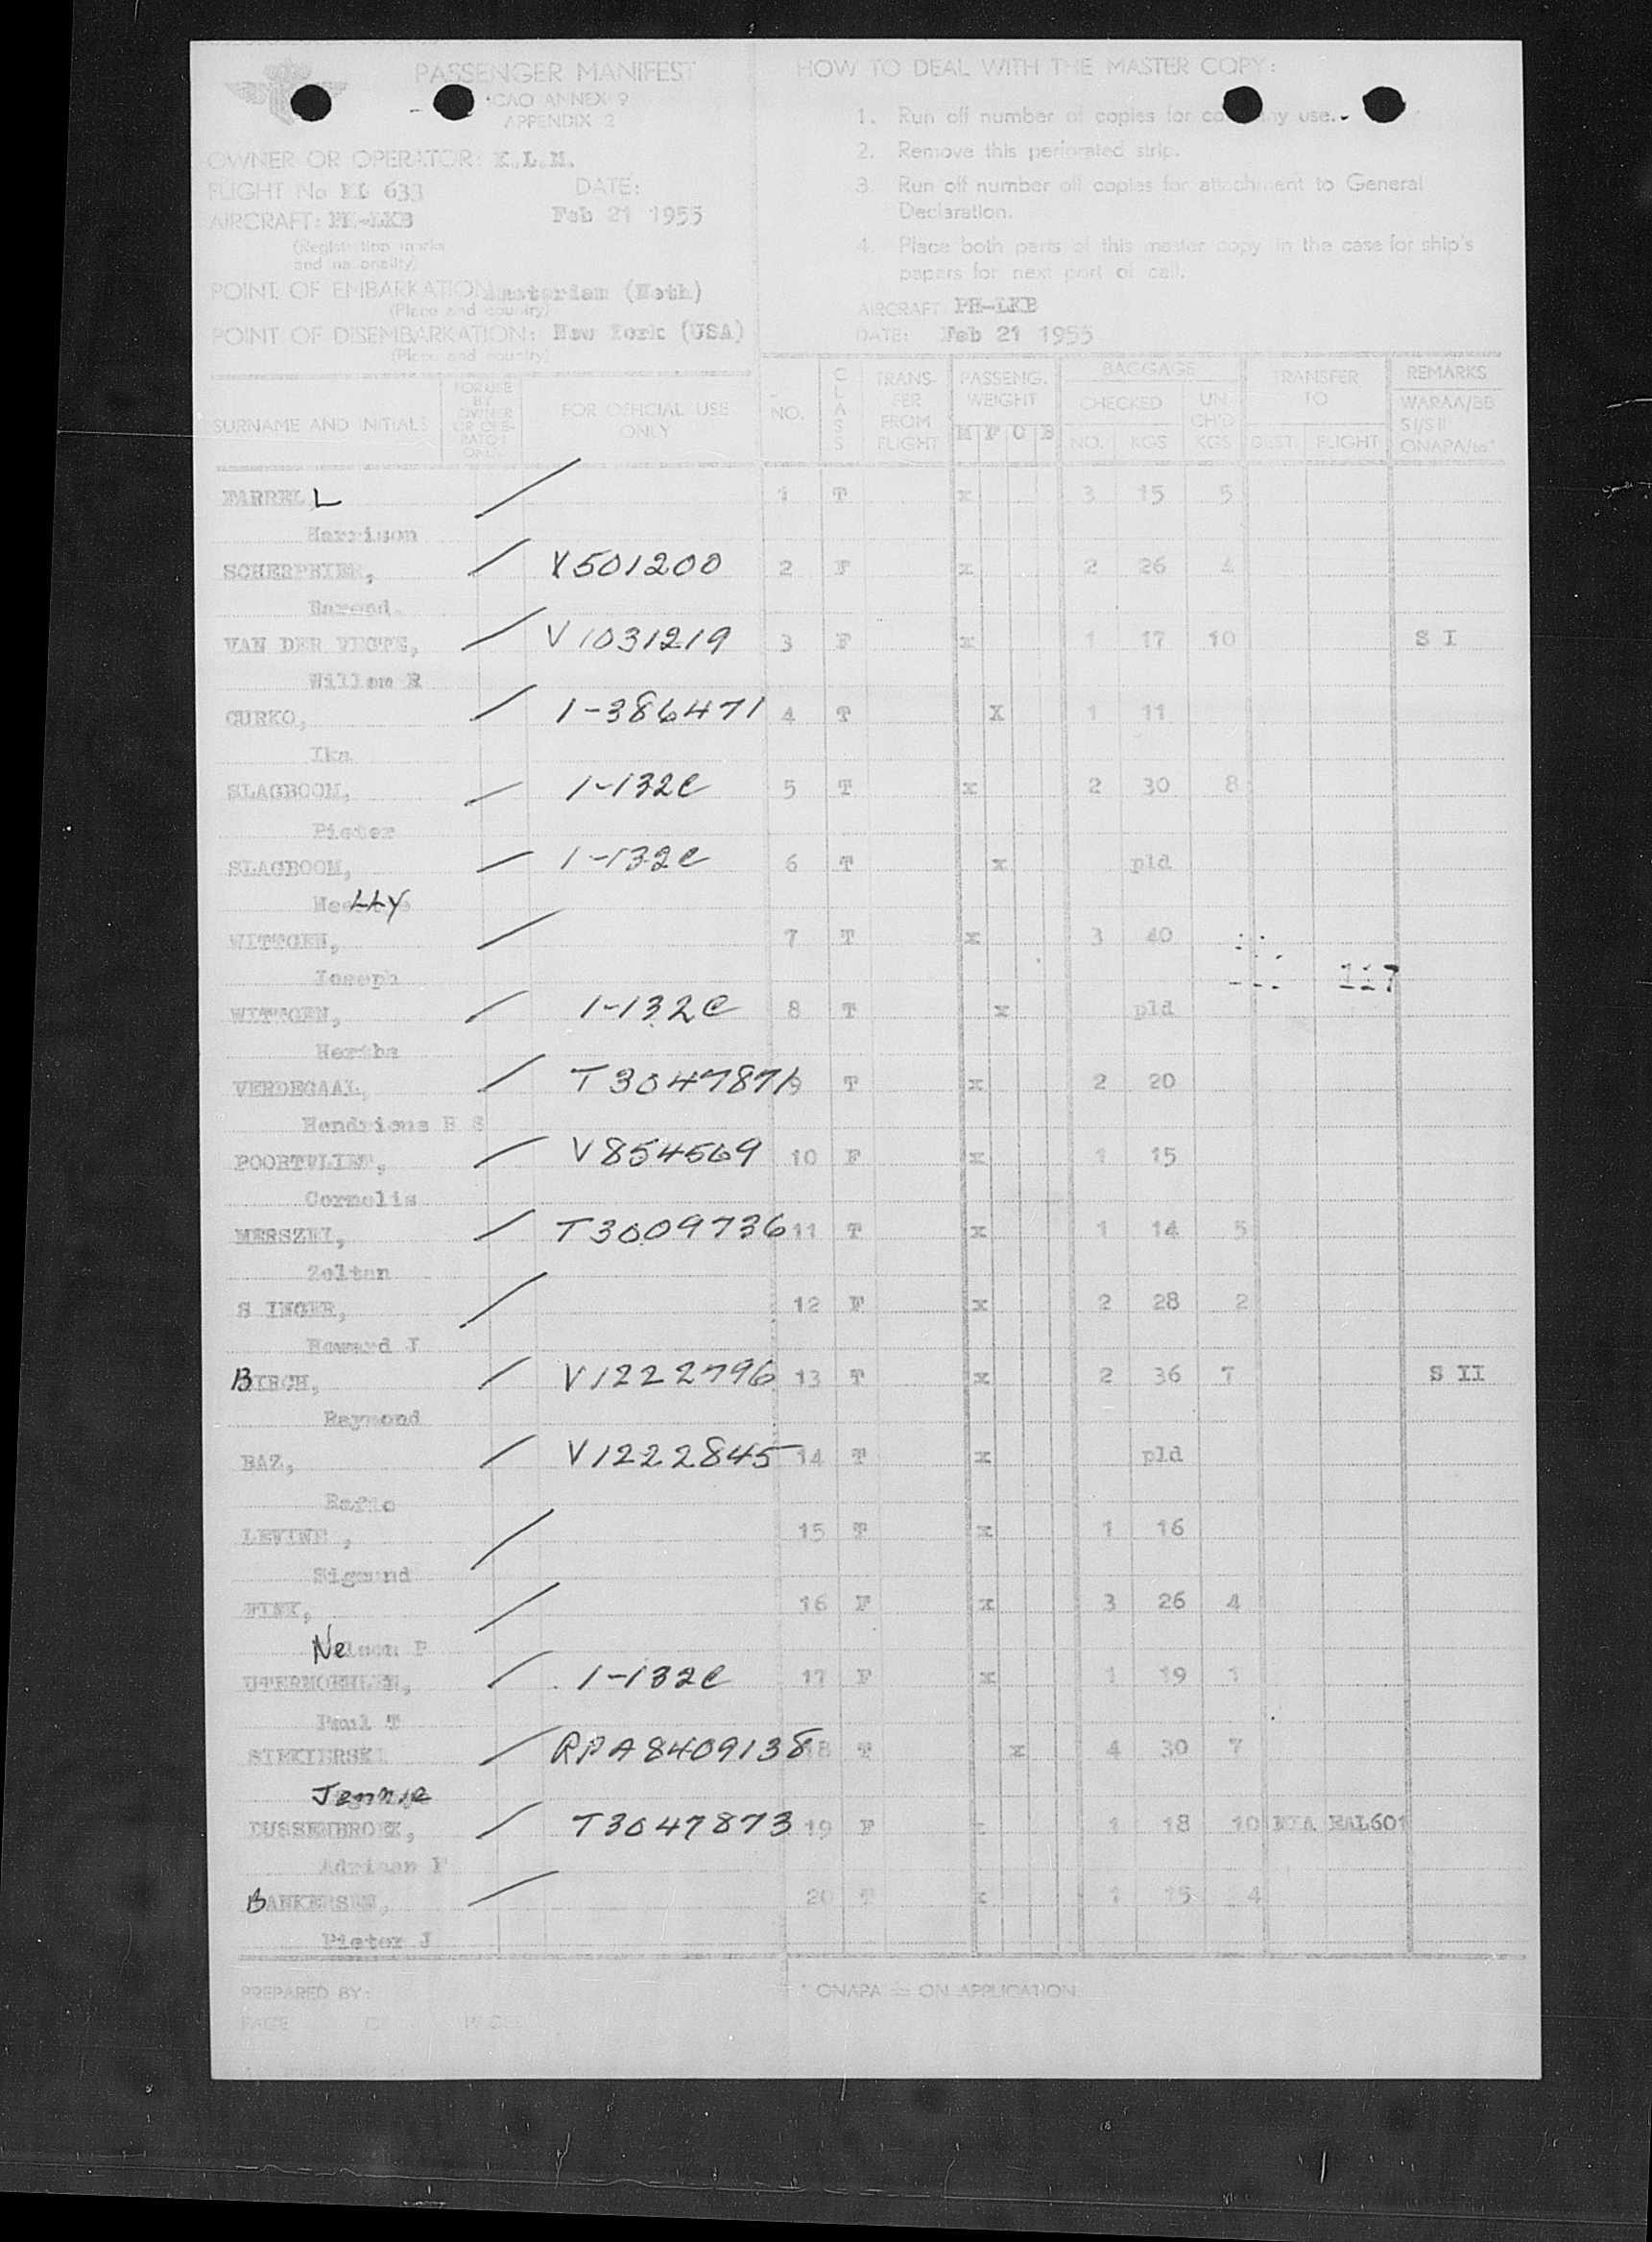 PASSENGER MANIFEST
ICAO ANNEX 9
APPENDIX 2
OWNER OR OPERATOR: K.L.M.
FLIGHT No KL 633
DATE:
AIRCRAFT: PH-LKB
Feb 21 1955
(Registration marks
and nationality)
POINT OF EMBARKATION Amsterdam (Neth)
(Place and country)
POINT OF DISEMBARKATION: New York (USA)
(Place and country)
HOW TO DEAL WITH THE MASTER COPY:
1. Run off number of copies for company use.
2. Remove this perforated strip.
3. Run off number off copies for attachment to General
Declaration.
4. Place both parts of this master copy in the case for ship's
papers for next port of call.
AIRCRAFT PH-LKB
DATE: Feb 21 1955
SURNAME AND INITIALS
FOR USE
BY
OWNER
OR OPE-
RATOR
ONLY
FOR OFFICIAL USE
ONLY
NO.
CLASS
TRANS-
FER
FROM
FLIGHT
PASSENG.
WEIGHT
M F C B
BAGGAGE
CHECKED
NO. KGS
UN
CH'D
KGS
TRANSFER
TO
DEST. FLIGHT
REMARKS
WARAA/BB
S I/S II
ONAPA/to*
FARREL L / 1 T x 3 15 5
Harrison
/ X501200 2 F x 2 26 4
Barend
VAN DER / V1031219 3 F x 1 17 10 S I
Willem R
CURKO, / 1-386471 4 T X 1 11
Ika
SLAGBOOM, / 1-132C 5 T x 2 30 8
Pieter
SLAGBOOM, / 1-132C 6 T x pld
LLY
WITTGEN, / 7 T x 3 40
Joseph
117
WITTGEN, / 1-132C 8 T x pld
Hertha
VERDEGAAL, / T3047871 9 T x 2 20
Hendricus B S
POORTVLIET, / V854569 10 F x 1 15
Cornelis
MERSZEI, / T3009736 11 T x 1 14 5
Zoltan
S INGER, / 12 F x 2 28 2
Howard J
BIRCH, / V1222796 13 T x 2 36 7 S II
Raymond
BAZ, / V1222845 14 T x pld
LEVINE , / 15 T x 1 16
Sigmund
FINK, / 16 F x 3 26 4
Nelson P
UTERMOEHLEN, / 1-132C 17 F x 1 19 1
Paul T
SIEKIERSKI / RPA8409138 18 T x 4 30 7
Jennie
DUSSENBROEK, / T3047873 19 F x 1 18 10 HAL601
Adriaan
BANKERSEN, / 20 T x 1 15 4
Pieter J
PREPARED BY:
PAGE OF PAGES
* ONAPA = ON APPLICATION